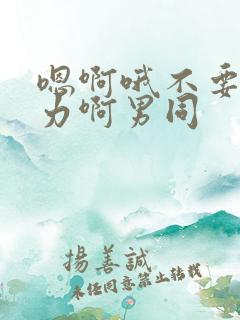 嗯啊哦不要
力啊男同
揚善誠
未经同意禁止转载